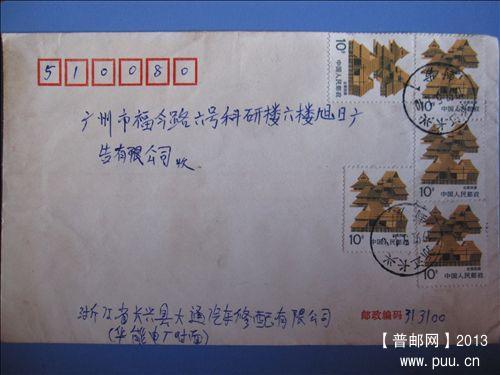 510080
广州市福今路六号科研楼六楼旭日广
告有限公司收
10分
中国人民邮政
10分
中国人民邮政
10分
中国人民邮政
10分
中国人民邮政
10分
中国人民邮政
浙江省长兴县大通汽车修配有限公司
(华能电厂对面)
邮政编码 313100
【普邮网】2013
www.puu.cn